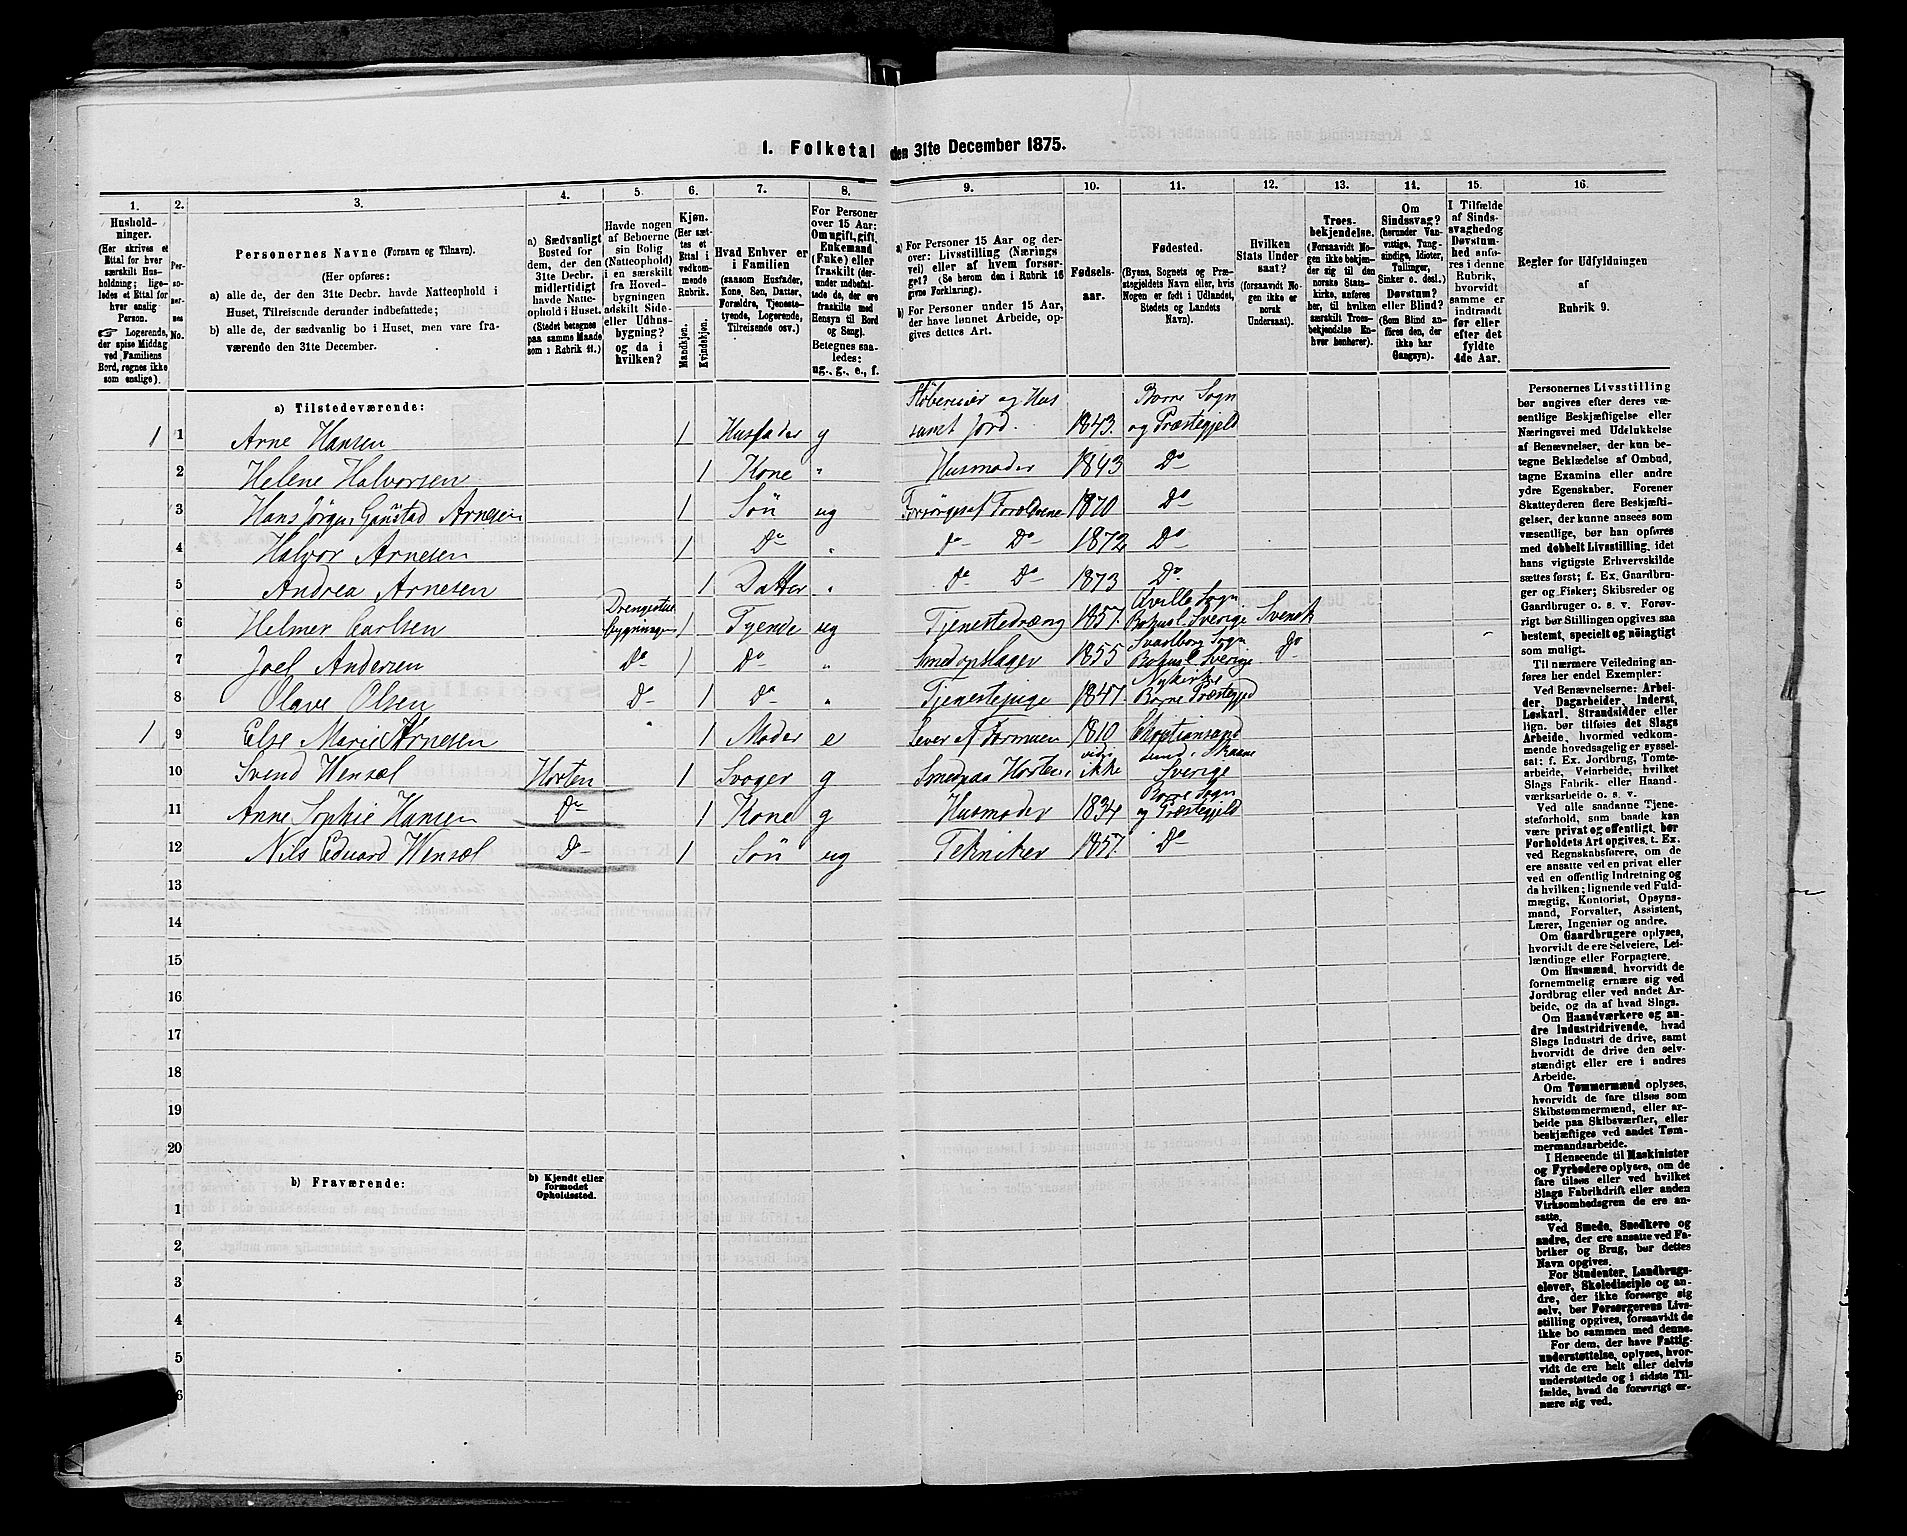 1. Folketal den 31te December 1875.
1. 2. 3. 4. 5. 6. 7. 8. 9. 10. 11. 12. 13. 14. 15. 16.
Hushold-
ninger.
(Her skrives et
Ettal for hver
særskilt Hus-
holdning; lige-
ledes et Ettal for
hver enslig
Person.
☞ Logerende,
der spise Middag
ved Familiens
Bord, regnes ikke
som enslige).
Per-
so-
ner-
nes
No.
Personernes Navne (Fornavn og Tilnavn).
(Her opføres:
a) alle de, der den 31te Decbr. havde Natteophold i
Huset, Tilreisende derunder indbefattede;
b) alle de, der sædvanlig bo i Huset, men vare fra-
værende den 31te December.
a) Sædvanligt
Bosted for
dem, der den
31te Decbr.
midlertidigt
havde Natte-
ophold i Huset.
(Stedet betegnes
paa samme Maade
som i Rubrik 11.)
Havde nogen
af Beboerne
sin Bolig
(Natteophold)
i en særskilt
fra Hoved-
bygningen
adskilt Side-
eller Udhus-
bygning?
og da i
hvilken?
Kjøn.
(Her sæt-
tes et
Ettal i
vedkom-
mende
Rubrik.
Mandkjøn.
Kvindekjøn.
Hvad Enhver er
i Familien
(saasom Husfader,
Kone, Søn, Datter,
Forældre, Tjeneste-
tyende, Logerende,
Tilreisende osv.)
For Personer
over 15 Aar:
Om ugift, gift,
Enkemand
(Enke) eller
fraskilt (der-
under indbefat-
tede de, der ere
fraskilte med
Hensyn til Bord
og Seng).
Betegnes saa-
ledes:
ug., g., e., f.
a) For Personer 15 Aar og der-
over: Livsstilling (Nærings
vei) eller af hvem forsør-
get? (Se herom den i Rubrik 16
givne Forklaring).
b) For Personer under 15 Aar,
der have lønnet Arbeide, op-
gives dettes Art.
Fødsels-
aar.
Fødested.
(Byens, Sognets og Præ-
stegjeldets Navn eller, hvis
Nogen er født i Udlandet,
Stedets og Landets
Navn).
Hvilken
Stats Under
saat?
(forsaavidt No-
gen ikke er
norsk
Undersaat).
Troes-
bekjendelse.
(Forsaavidt No-
gen ikke bekjen-
der sig til den
norske Stats-
kirke, anføres
her, til hvilken
særskilt Troes-
bekjendelse En-
hver henhører).
Om
Sindssvag?
(herunder Van-
vittige, Tung-
sindige, Idioter,
Tullinger,
Sinker o. desl.)
Døvstum?
eller Blind?
(Som Blind an-
føres den, der
ikke har
Gangsyn).
I Tilfælde
af Sinds-
svaghed og
Døvstum-
hed anfø-
res i denne
Rubrik,
hvorvidt
samme er
indtraadt
før eller
efter det
fyldte
4de Aar.
Regler for Udfyldningen
af
Rubrik 9.
a) Tilstedeværende:
1 1 Arne Hansen 1 Husfader g og Hus samt Jord. 1843. Borre Sogn og Præstegjeld
2 Helene Halvorsen 1 Kone " Husmoder 1843 Do
3 Hans Jørgen Arnesen 1 Søn ug Forsørges af Forældrene 1870 Do
4 Halvor Arnesen 1 Do " do Do 1872 Do
5 Andrea Arnesen 1 Datter " do Do 1873 Do
6 Helmer Carlsen 1 Tyende ug Tjenestedreng 1857. Sogn Bohusl. Sverige Svensk
7 Joel Andersen Do 1 Do " 1855 Sogn Bohusl Sverige Do
8 Olave Olsen Do 1 Do " Tjenestepige 1847. Nykirke Borre Præstegjeld
1 9 Else Marie Arnesen " 1 Moder e Lever af Formuen 1810 Christiansand
10 Svend Wensel Horten 1 Svoger g Smed paa Horten vides ikke Skaane Sverige
11 Anne Sophie Hansen Do 1 Kone g Husmoder 1834 Borre Sogn og Præstegjeld
12 Nils Eduard Wensel Do 1 Søn ug Tekniker 1857 Do
13
14
15
16
17
18
19
20
b) Fraværende:
b) Kjendt eller
formodet
Opholdssted.
1
2
3
4
5
6
Personernes Livsstilling
bør angives efter deres væ-
sentlige Beskjæftigelse eller
Næringsvei med Udelukkelse
af Benævnelser, der kun be-
tegne Beklædelse af Ombud,
tagne Examina eller andre
ydre Egenskaber. Forener
Skatteyderen flere Beskjæfti-
gelser, der kunne ansees som
væsentlige, bør han opføres
med dobbelt Livsstilling, idet
hans vigtigste Erhvervskilde
sættes først; f. Ex. Gaardbru-
ger og Fisker; Skibsreder og
Gaardbruger o. s. v. Forøv-
rigt bør Stillingen opgives saa
bestemt, specielt og nøiagtigt
som muligt.
Til nærmere Veiledning an-
føres her endel Exempler:
Ved Benævnelserne: Arbei-
der, Dagarbeider, Inderst,
Løskarl, Strandsidder eller
lign. bør tilføies det Slags
Arbeide, hvormed vedkom-
mende hovedsagelig er syssel-
sat: f. Ex. Jordbrug, Tomte-
arbeide, Veiarbeide, hvilket
Slags Fabrik- eller Haand-
værksarbeide o. s. v.
Ved alle saadanne Tjene-
steforhold, som baade kan
være privat og offentligt, bør
Forholdets Art opgives, t. Ex.
ved Regnskabsførere, om de
ere ansatte ved en privat eller
ved en offentlig Indretning og
da hvilken; lignende ved Fuld-
mægtig, Kontorist, Opsyns-
mand, Forvalter, Assistent,
Lærer, Ingeniør og andre.
Om Gaardbrugere oplyses,
hvorvidt de ere Selveiere, Lei-
lændinge eller Forpagtere.
Om Husmænd, hvorvidt de
fornemmelig ernære sig ved
Jordbrug eller ved andet Ar-
beide, og da af hvad Slags.
Om Haandværkere og an-
dre Industridrivende, hvad
Slags Industri de drive, samt
hvorvidt de drive den selv-
stændigt eller ere i andres
Arbeide.
Om Tømmermænd oplyses,
hvorvidt de fare tilsøs som
Skibstømmermænd, eller ar-
beide paa Skibsværfter, eller
beskjæftiges ved andet Tøm-
mermandsarbeide.
I Henseende til Maskinister
og Fyrbødere oplyses, om de
fare tilsøs eller ved hvilket
Slags Fabrikdrift eller anden
Virksomhedsgren de ere an-
satte.
Ved Smede, Snedkere og
andre, der ere ansatte ved Fa-
briker og Brug, bør dettes
Navn opgives.
For Studenter, Landbrugs-
elever, Skoledisciple og an-
dre, der ikke forsørge sig
selv, bør Forsørgerens Livs-
stilling opgives, forsaavidt de
ikke bo sammen med denne.
For dem, der have Fattig-
understøttelse, oplyses, hvor-
vidt de ere helt eller delvis
understøttede og i sidste Til-
fælde, hvad de forøvrigt er-
nære sig ved.